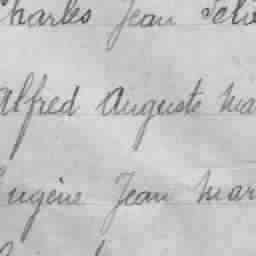 Charles Jean Féli
Alfred Auguste Ma
Eugène Jean Mar